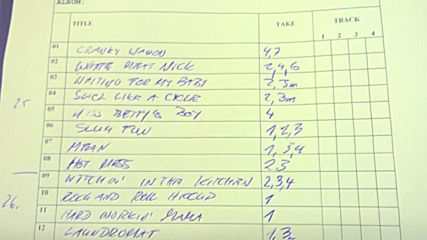 ALBUM:
TITLE TAKE TRACK
1 2 3 4
01 CRANKY WAGON 4,7
02 WHITE MEAT NICK 2,4,6
03 WAITING FOR MY BABY
04 SLICK LIKE A CYCLE 2,3m
25
05 MISS BETTY'S BOY 4
06 FUN 1,2,3
07 MEAN 1,3,4
08 HOT MESS 2 3
09 WITCHIN' IN THE KITCHEN 2,3,4
26.
10 ROCK AND ROLL HICCUP 1
11 HARD WORKIN' MAMA 1
12 LAUNDROMAT